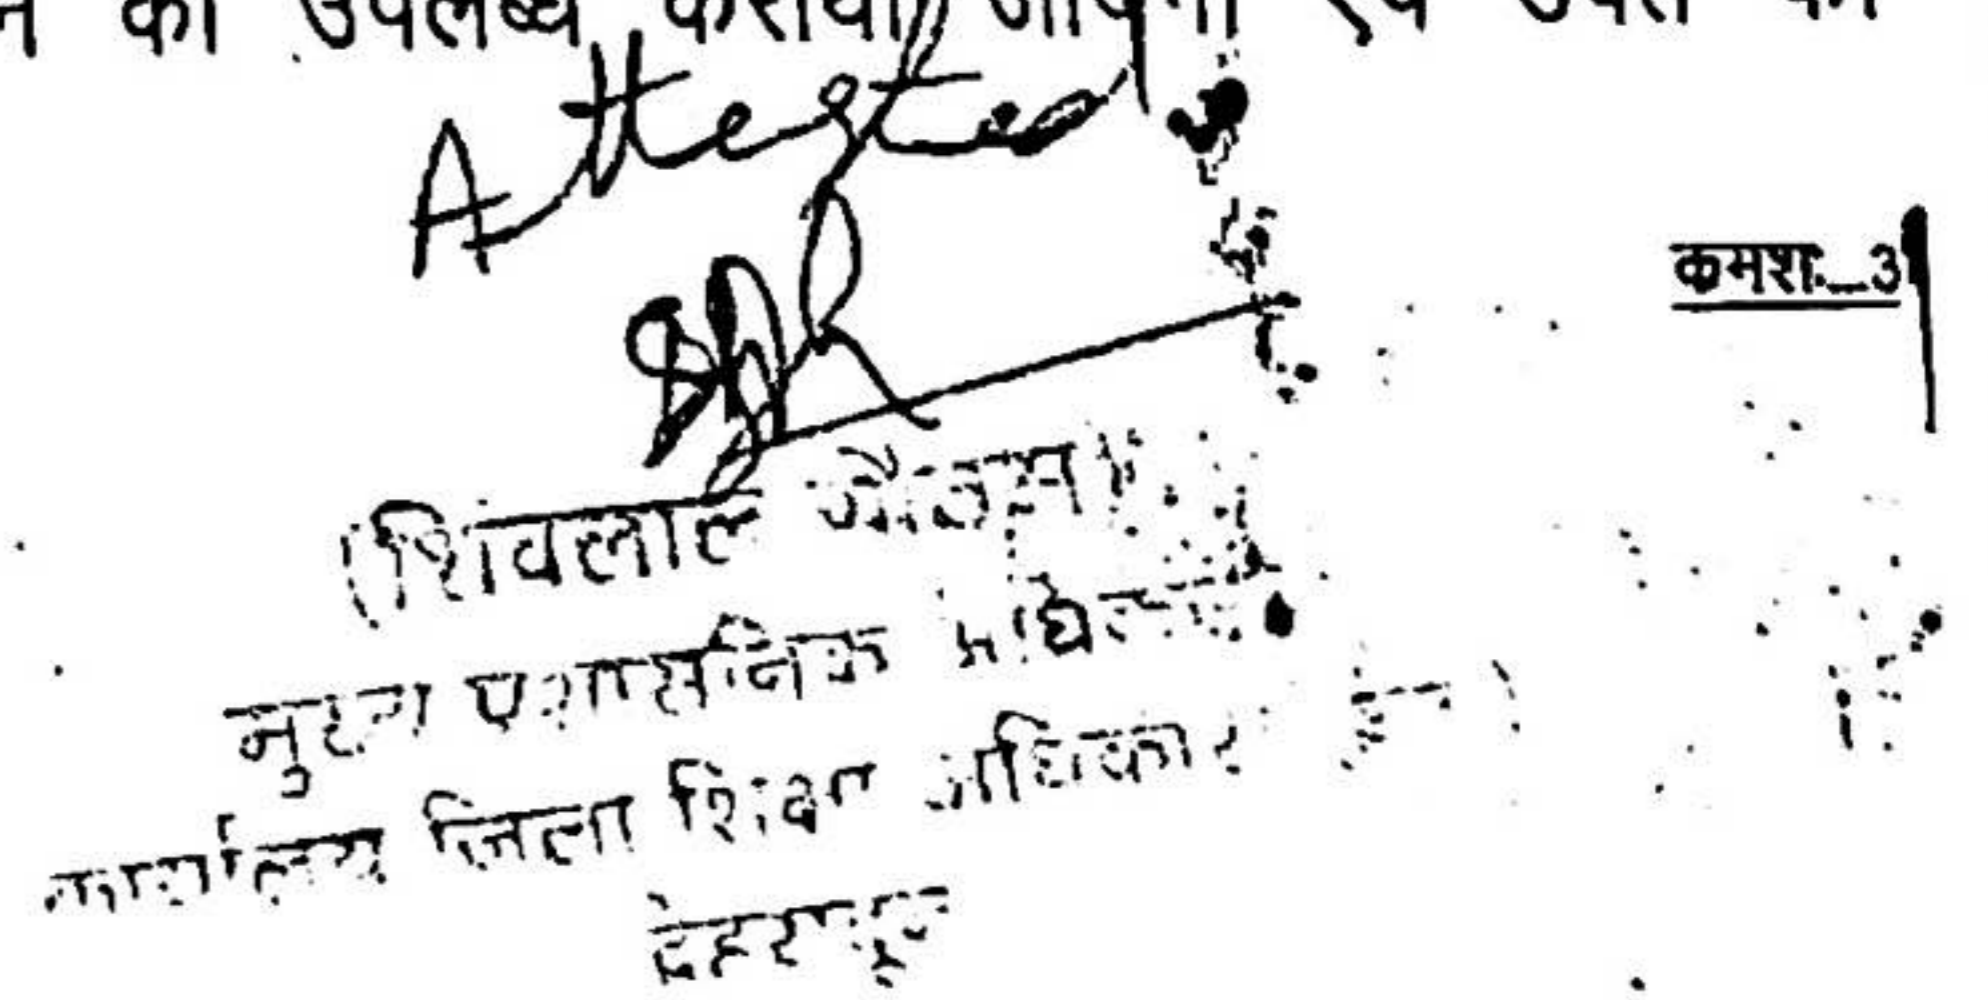 को उपलब्ध कराया जायेगा एवं उक्त का
Attested
कमशः_3
(शिवलाल गौतम)
मुख्य प्रशासनिक अधिकारी
कार्यालय जिला शिक्षा अधिकारी
देहरादून